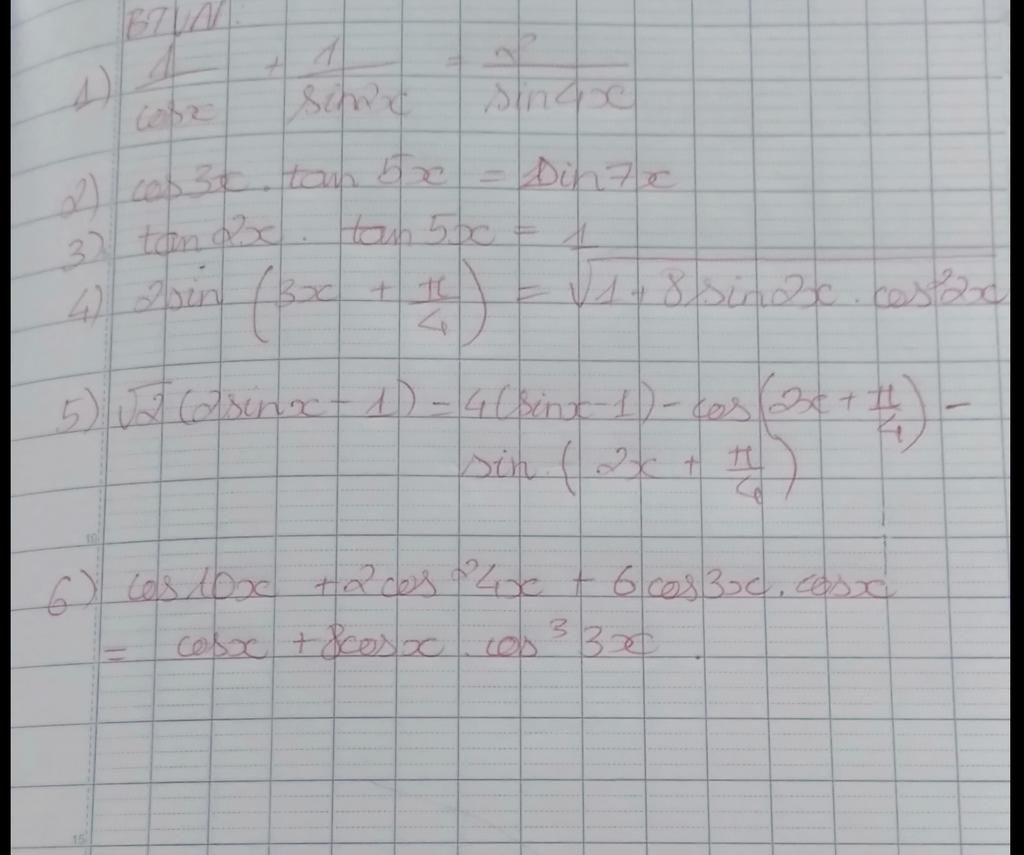 BTVN:
1) 1/cosx + 1/sin2x = 2/sin4x
2) cos3x . tan 5x = sin7x
3) tan 2x . tan 5x = 1
4) 2sin (3x + π/4) = √1 + 8sin2x . cos²2x
5) √2 (2sinx - 1) = 4(sinx - 1) - cos(2x + π/4) -
sin (2x + π/4)
6) cos10x + 2cos²4x + 6cos3x.cosx
= cosx + 8cosx . cos³3x .
10
15